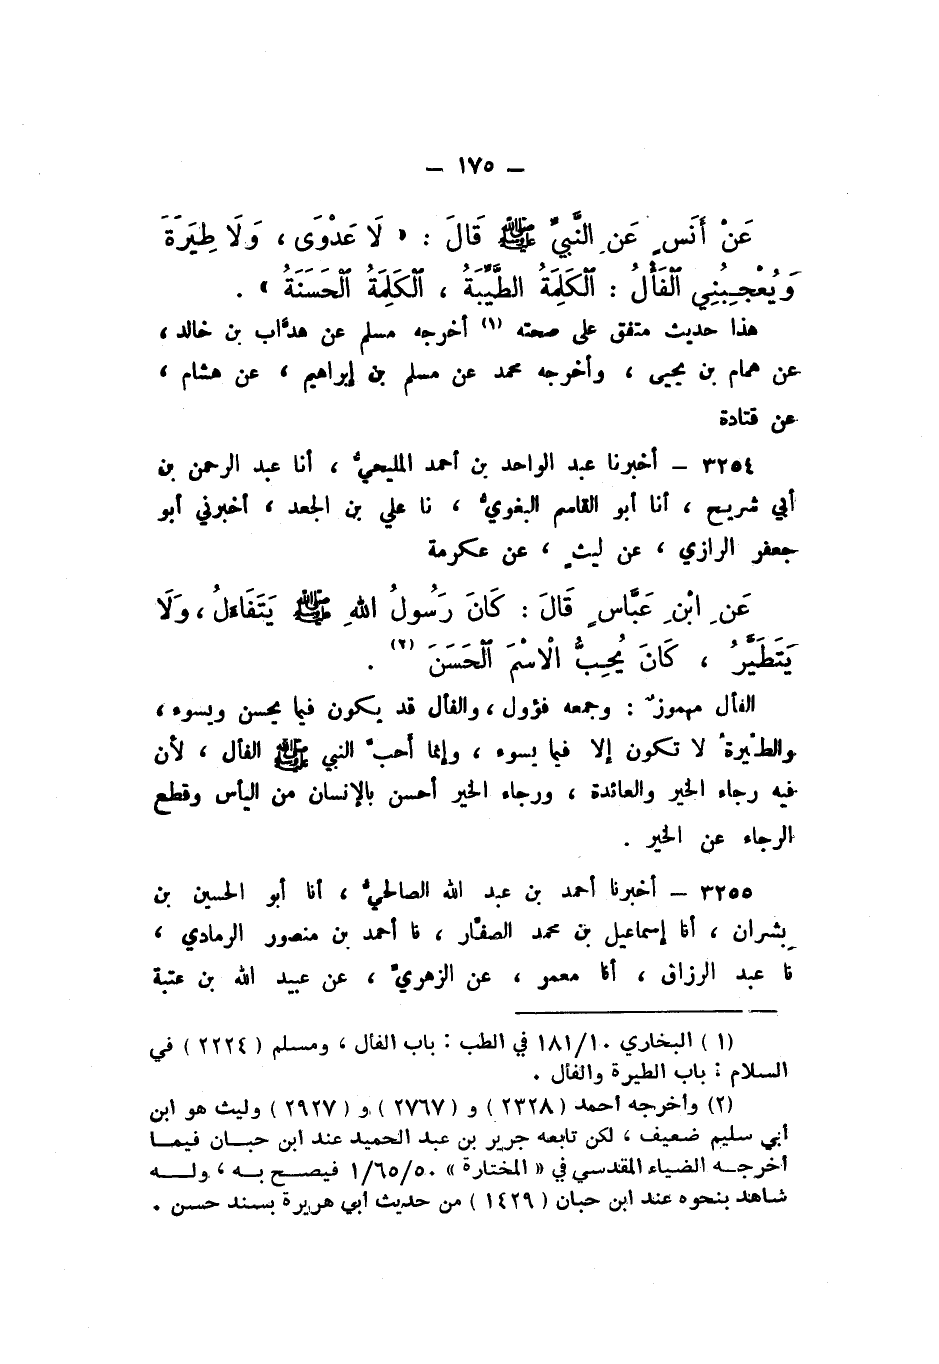 – ١٧٥ –
عَنْ أَنَسٍ عَنِ النَّبِيِّ ﷺ قَالَ : « لَا عَدْوَى ، وَلَا طِيَرَةَ
وَيُعْجِبُنِي الْفَأْلُ : الْكَلِمَةُ الطَّيِّبَةُ ، الْكَلِمَةُ الْحَسَنَةُ » .
هذا حديث متفق على صحته (١) أخرجه مسلم عن هدَّاب بن خالد ،
عن همام بن يحيى ، وأخرجه محمد عن مسلم بن إبراهيم ، عن هشام ،
عن قتادة
٣٢٥٤ – أخبرنا عبد الواحد بن أحمد المليحيُّ ، أنا عبد الرحمن بن
أبي شريح ، أنا أبو القاسم البغويُّ ، نا علي بن الجعد ، أخبرني أبو
جعفر الرازي ، عن ليثٍ ، عن عكرمة
عَنِ ابْنِ عَبَّاسٍ قَالَ : كَانَ رَسُولُ اللهِ ﷺ يَتَفَاءَلُ ، وَلَا
يَتَطَيَّرُ ، كَانَ يُحِبُّ الْاسْمَ الْحَسَنَ (٢) .
الفأل مهموزٌ : وجمعه فؤول ، والفأل قد يكون فيما يحسن ويسوء ،
والطِّيرةُ لا تكون إلا فيما يسوء ، وإنما أحبَّ النبي ﷺ الفأل ، لأن
فيه رجاء الخير والعائدة ، ورجاء الخير أحسن بالإنسان من اليأس وقطع
الرجاء عن الخير .
٣٢٥٥ – أخبرنا أحمد بن عبد الله الصالحيُّ ، أنا أبو الحسين بن
بِشران ، أنا إسماعيل بن محمد الصفَّار ، نا أحمد بن منصور الرمادي ،
نا عبد الرزاق ، أنا معمر ، عن الزهريِّ ، عن عبيد الله بن عتبة
(١) البخاري ١٨١/١٠ في الطب : باب الفأل ، ومسلم ( ٢٢٢٤ ) في
السلام : باب الطيرة والفأل .
(٢) وأخرجه أحمد ( ٢٣٢٨ ) و ( ٢٧٦٧ ) و ( ٢٩٢٧ ) وليث هو ابن
أبي سليم ضعيف ، لكن تابعه جرير بن عبد الحميد عند ابن حبان فيما
أخرجه الضياء المقدسي في « المختارة » ١/٦٥/٥٠ فيصح به ، وله
شاهد بنحوه عند ابن حبان ( ١٤٢٩ ) من حديث أبي هريرة بسند حسن .